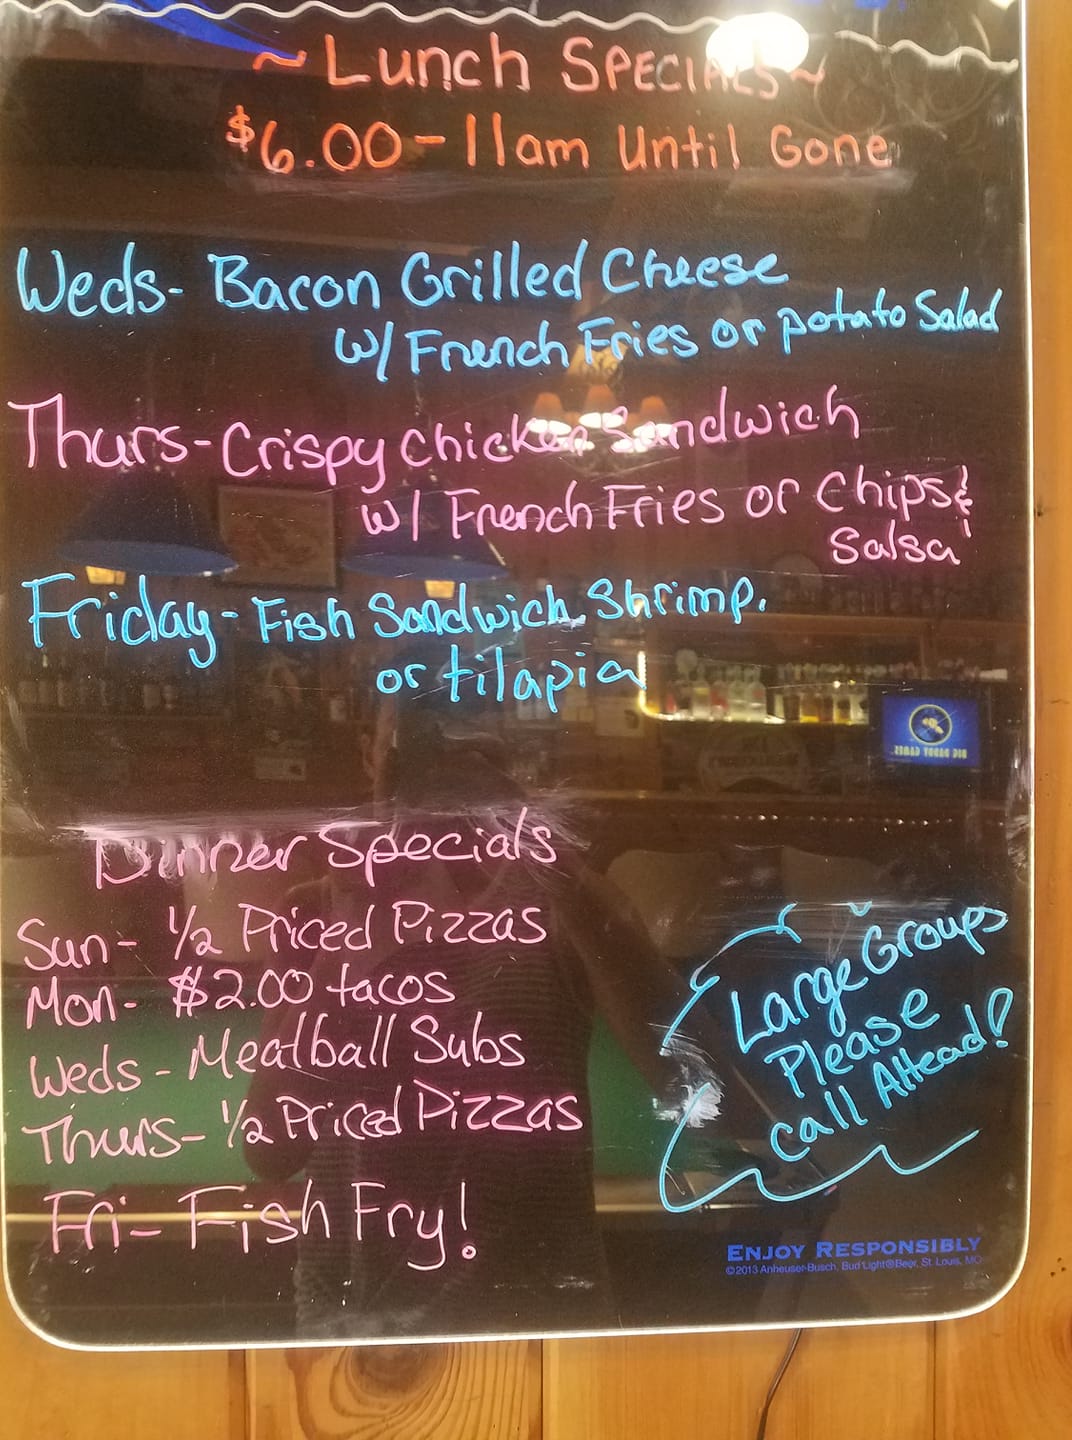 ~ Lunch Specials ~
$6.00 - 11am Until Gone
Weds- Bacon Grilled Cheese
w/ French Fries or potato Salad
Thurs- Crispy Chicken Sandwich
w/ French Fries or Chips &
Salsa
Friday- Fish Sandwich, Shrimp,
or tilapia
BIG DADDY GAMES
Dinner Specials
Sun- 1/2 Priced Pizzas
Mon- $2.00 tacos
Weds- Meatball Subs
Thurs- 1/2 Priced Pizzas
Fri- Fish Fry!
Large Groups
Please
call AHead!
ENJOY RESPONSIBLY
©2013 Anheuser-Busch, Bud Light® Beer, St. Louis, MO